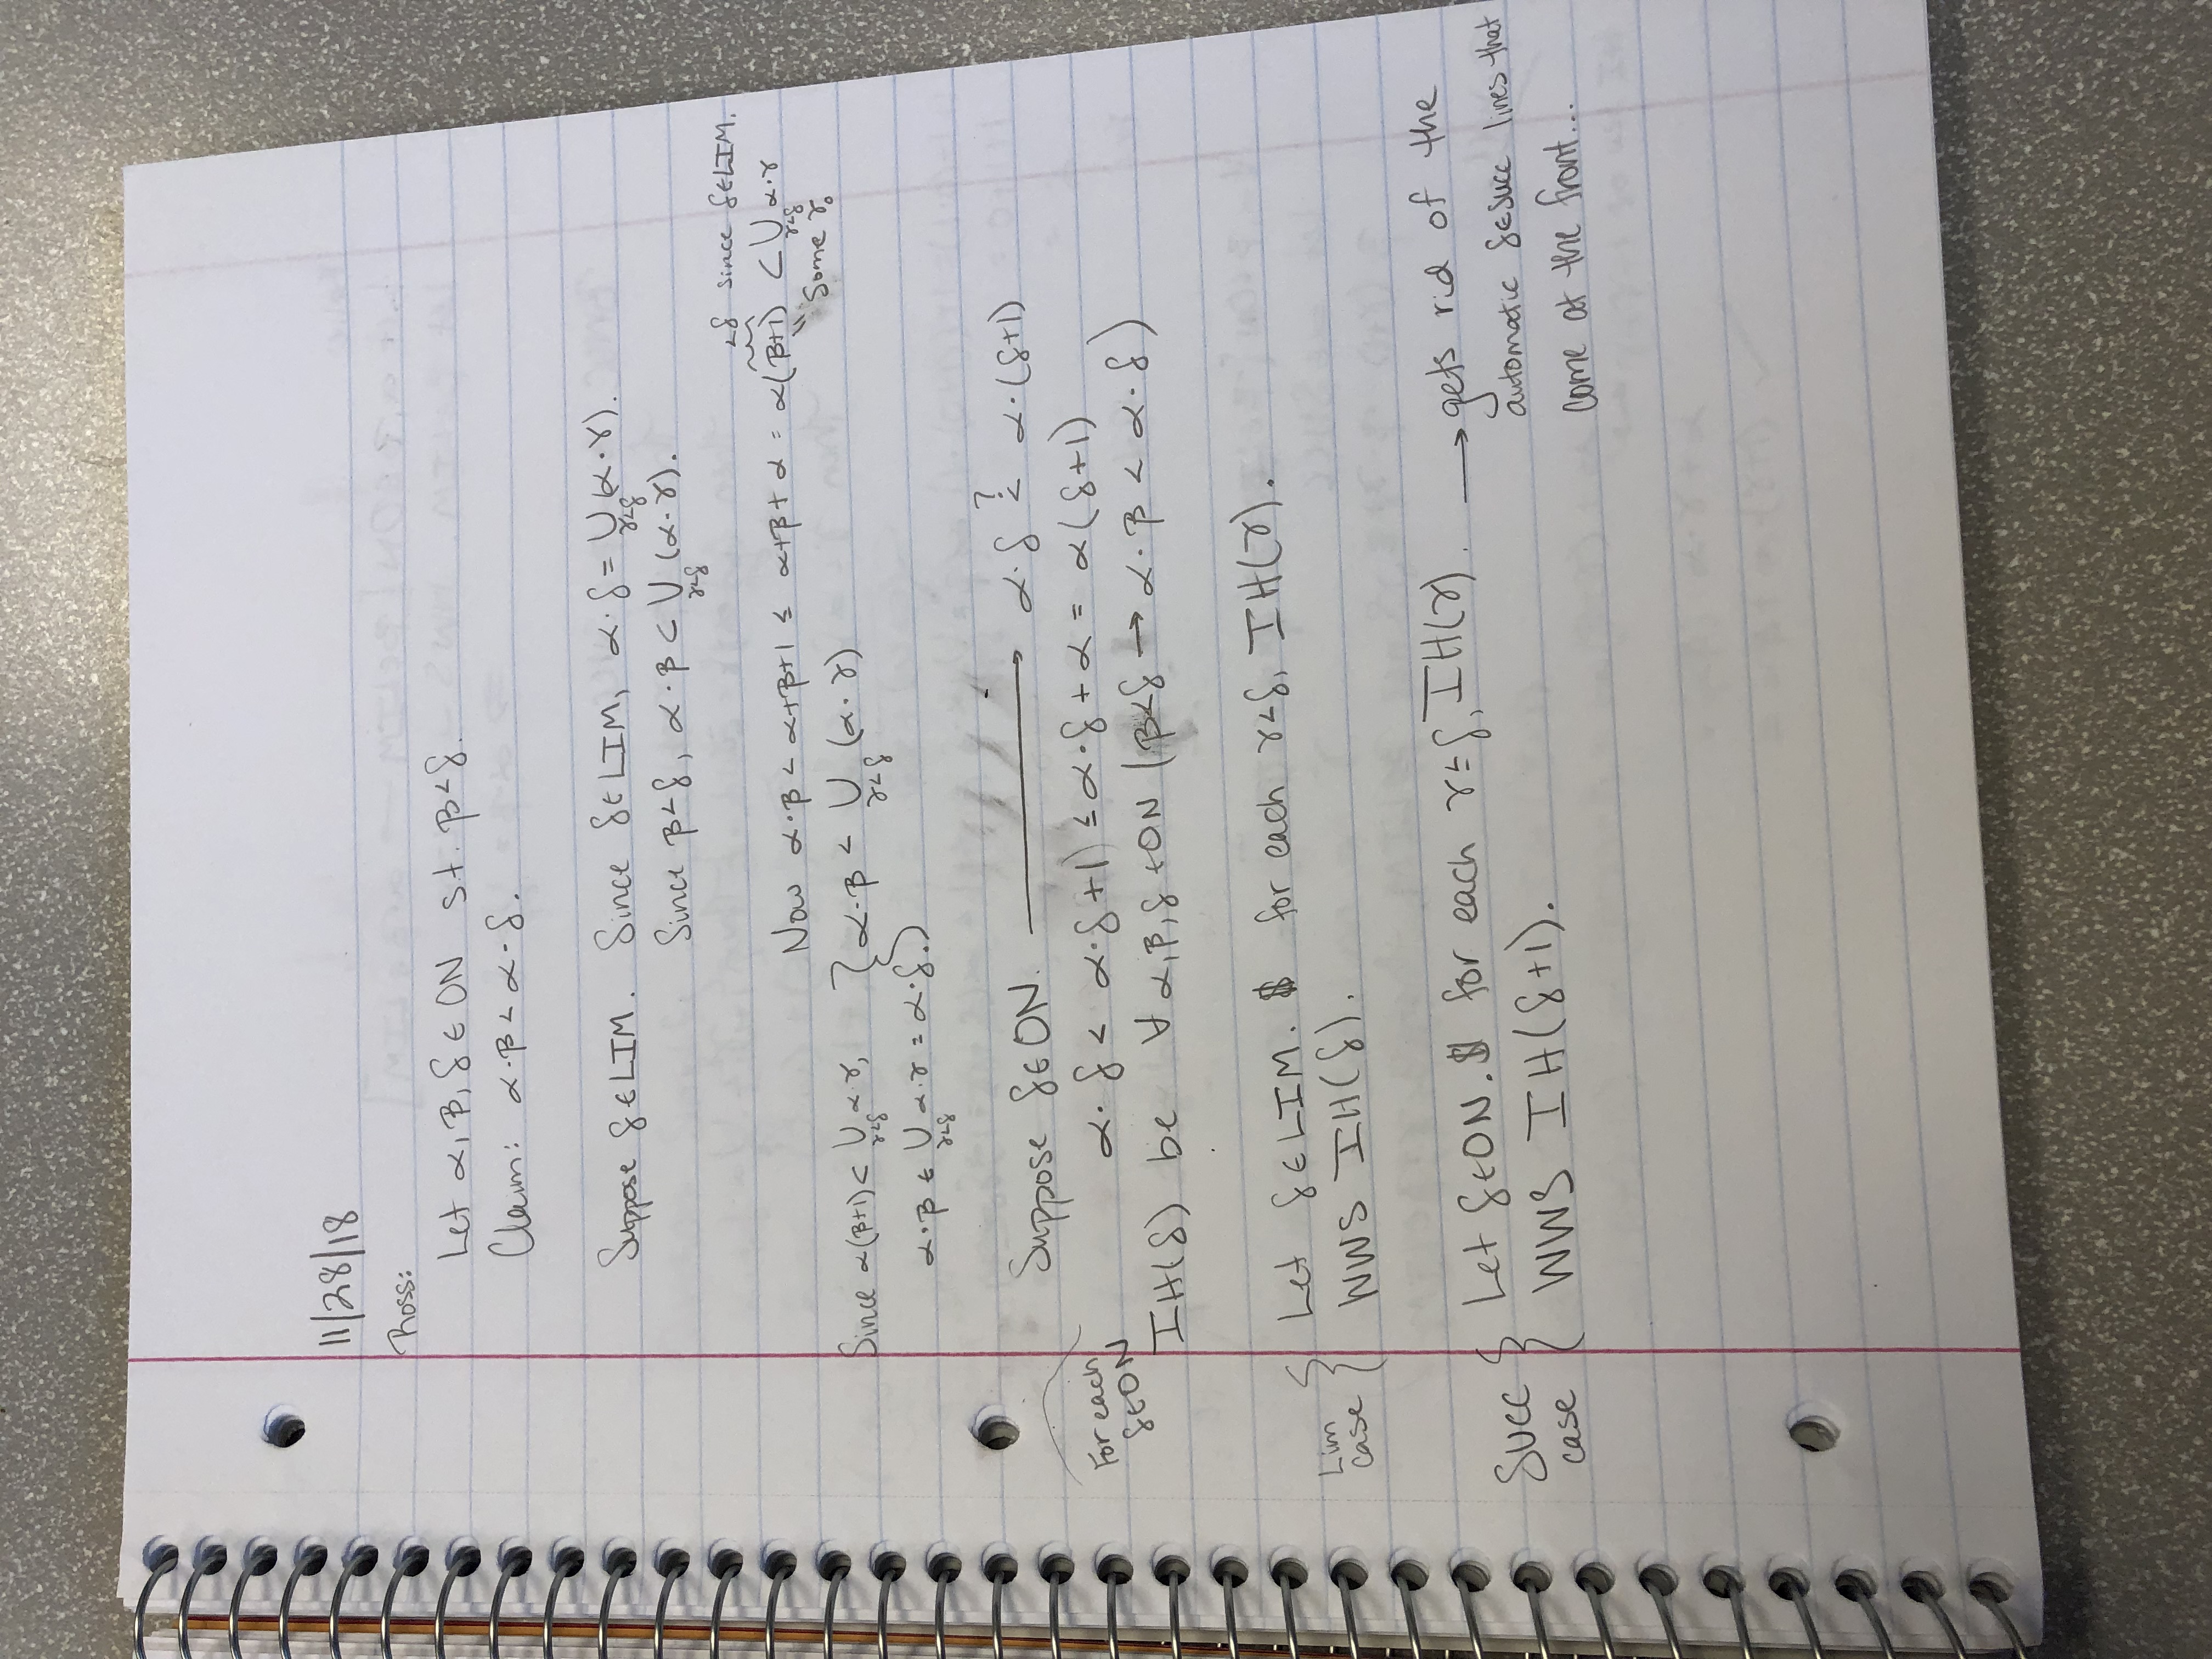 11/28/18
Ross:
Let α, β, δ ∈ ON s.t. β<δ.
Claim: α·β < α·δ.
Suppose δ∈LIM. Since δ∈LIM, α·δ = ⋃_{γ<δ}(α·γ).
Since β<δ, α·β ⊂ ⋃_{γ<δ}(α·γ).
<δ since δ∈LIM.
Now α·β < α+β+1 ≤ α+β+α = α(β+1) ⊂ ⋃_{γ<δ} α·γ
some γ₀
Since α(β+1) ⊂ ⋃_{γ<δ} α·γ, } α·β < ⋃_{γ<δ}(α·γ)
α·β ∈ ⋃_{γ<δ} α·γ = α·δ.
Suppose δ∈ON. ⟶ α·δ <? α·(δ+1)
α·δ < α·δ+1) ≤ α·δ+α = α(δ+1)
For each δ∈ON
IH(δ) be ∀α,β,δ∈ON (β<δ → α·β < α·δ)
Lim case { Let δ∈LIM. $ for each γ<δ, IH(γ).
WWS IH(δ).
Succ case { Let δ∈ON. $ for each γ≤δ, IH(γ). → gets rid of the
automatic δ∈succ lines that
WWS IH(δ+1).
come at the front...